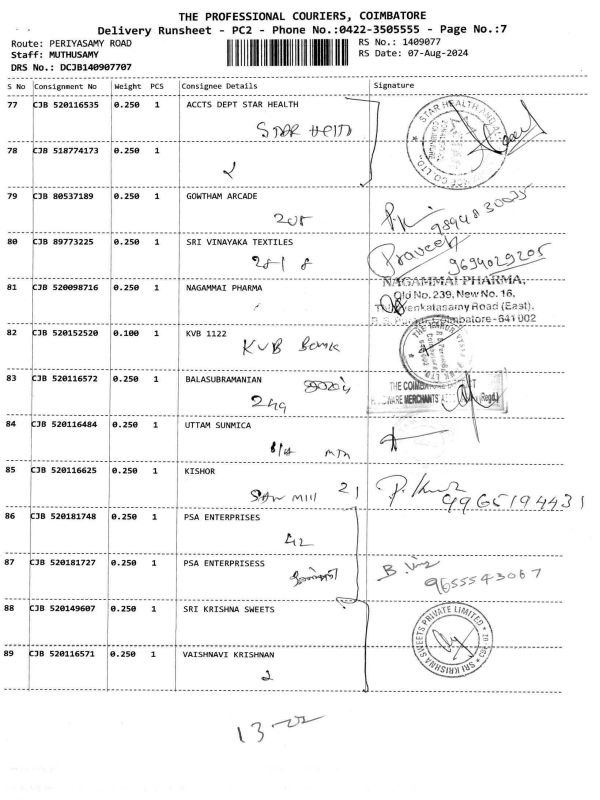 THE PROFESSIONAL COURIERS, COIMBATORE
Delivery Runsheet - PC2 - Phone No.:0422-3505555 - Page No.:7
Route: PERIYASAMY ROAD RS No.: 1409077
Staff: MUTHUSAMY RS Date: 07-Aug-2024
DRS No.: DCJB140907707
S No Consignment No Weight PCS Consignee Details Signature
77 CJB 520116535 0.250 1 ACCTS DEPT STAR HEALTH
STAR
78 CJB 518774173 0.250 1
79 CJB 80537189 0.250 1 GOWTHAM ARCADE
205
80 CJB 89773225 0.250 1 SRI VINAYAKA TEXTILES
Praveen
9694029205
81 CJB 520098716 0.250 1 NAGAMMAI PHARMA
NAGAMMAI PHARMA,
Old No. 239, New No. 16,
Venkatasamy Road (East).
Coimbatore - 641 002
82 CJB 520152520 0.100 1 KVB 1122
KVB Bank
83 CJB 520116572 0.250 1 BALASUBRAMANIAN
249
THE COIMBATORE
HARDWARE MERCHANTS (Regd.)
84 CJB 520116484 0.250 1 UTTAM SUNMICA
85 CJB 520116625 0.250 1 KISHOR
SAW MIll 21
9965194431
86 CJB 520181748 0.250 1 PSA ENTERPRISES
42
87 CJB 520181727 0.250 1 PSA ENTERPRISESS
9655543067
88 CJB 520149607 0.250 1 SRI KRISHNA SWEETS
SRI KRISHNA SWEETS PRIVATE LIMITED
89 CJB 520116571 0.250 1 VAISHNAVI KRISHNAN
2
13-22